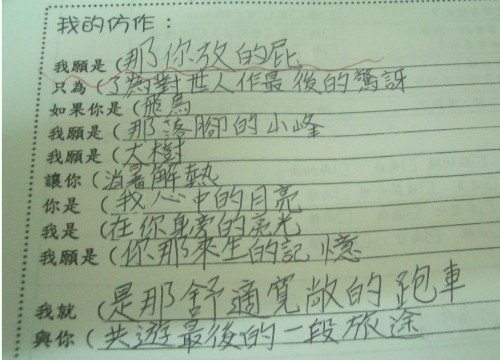 我的仿作：
我願是（那你放的屁
只為（了為對世人作最後的驚訝
如果你是（飛鳥
我願是（那落腳的小峰
我願是（大樹
讓你（消暑解熱
你是（我心中的月亮
我是（在你身旁的亮光
我願是（你那來生的記憶
我就（是那舒適寬敞的跑車
與你（共遊最後的一段旅途